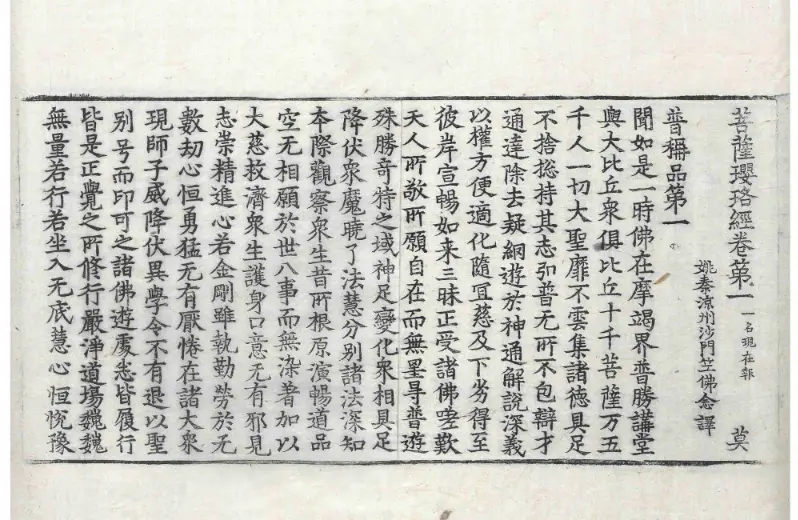 菩薩瓔珞經卷第一 一名現在報 莫
姚秦涼州沙門竺佛念譯
普稱品第一
聞如是一時佛在摩竭界普勝講堂
與大比丘衆俱比丘十千菩薩万五
千人一切大聖靡不雲集諸德具足
不捨惣持其志弘普无所不包辯才
通達除去疑網遊於神通解說深義
以權方便適化隨冝慈及下劣得至
彼岸宣暢如来三昧正受諸佛嗟歎
天人所敬所願自在而無罣㝵普遊
殊勝奇特之域神足變化衆相具足
降伏衆魔曉了法慧分别諸法深知
本際觀察衆生昔所根原演暢道品
空无相願於世八事而無染著加以
大慈救濟衆生護身口意无有邪見
志崇精進心若金剛雖執勤勞於无
數劫心恒勇猛无有厭惓在諸大衆
現師子威降伏異學令不有退以聖
别号而印可之諸佛遊處悉皆履行
皆是正覺之所修行嚴淨道塲巍巍
無量若行若坐入无底慧心恒恱豫